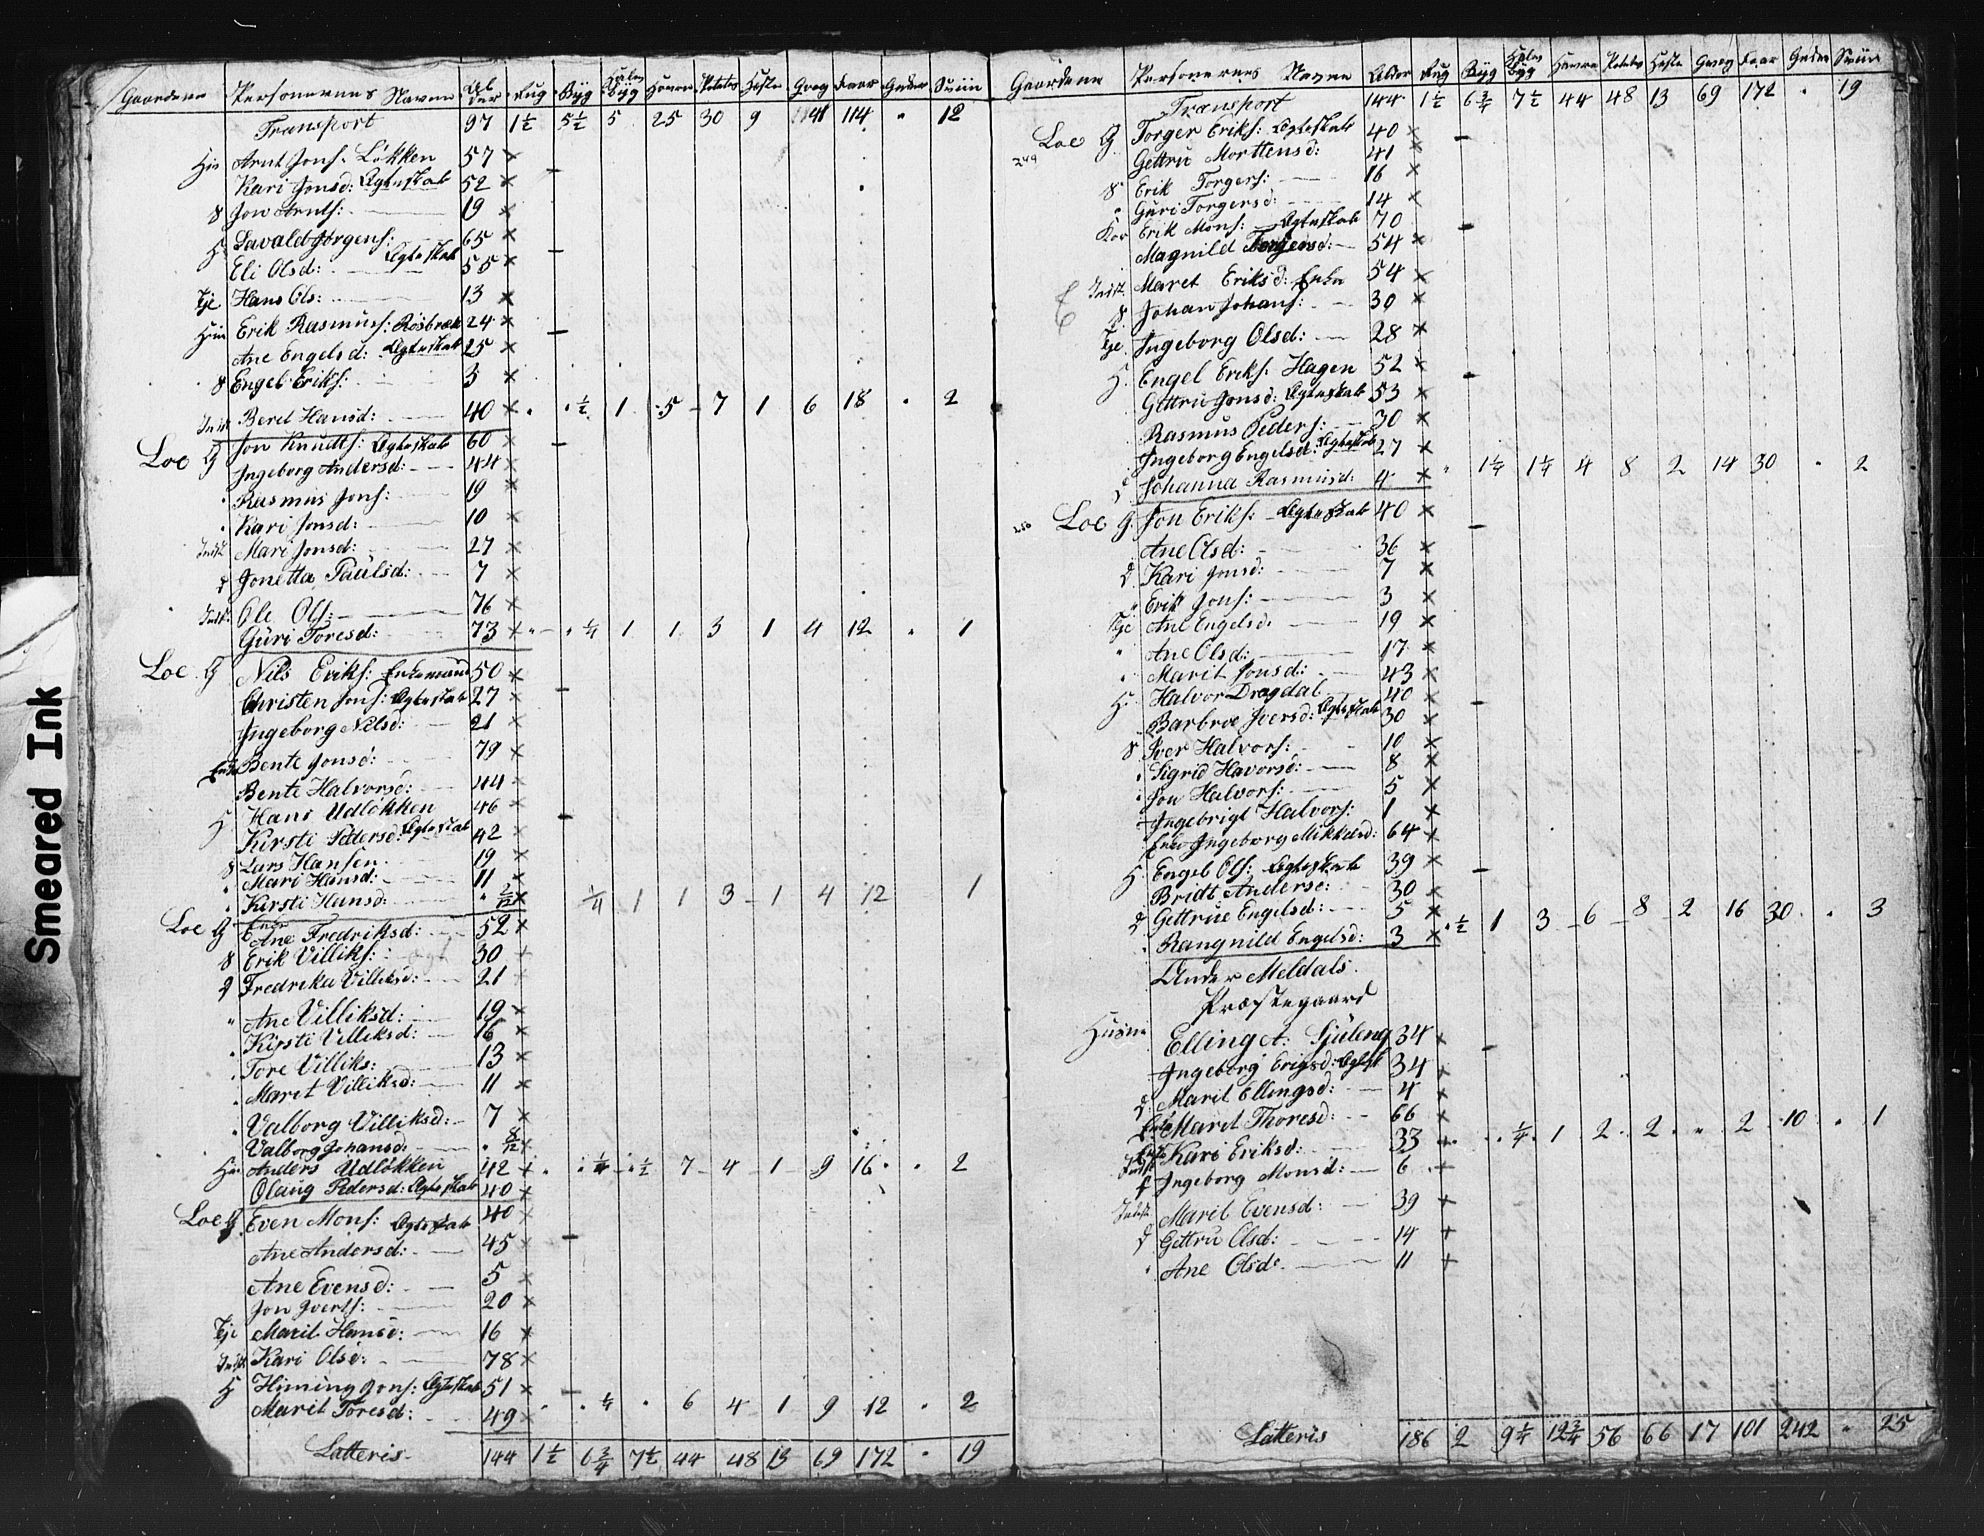 Gaardene Personernes Navne Alder Rug Byg Hav Byg Havre Potetes Heste Qvæg Faar Geder Sviin
Transport 97 1½ 5½ 5 25 30 9 41 114 " 12
Hm Arnt Jons: Løkken 57 ×
Kari Jonsd: Ægteskab 52 ×
S Jon Arnts: 19 ×
H Lavald Jørgens: 65 ×
Eli Olsd: Ægteskab 55 ×
Tje Hans Ols: 13 ×
Hm Erik Rasmuss: Røsbræk 24 ×
Ane Engelsd: Ægteskab 25 ×
S Engel Eriks: 3 ×
Indst Beret Hansd: 40 × " " ½ 1 5 7 1 6 18 " 2
Loe G Jon Knudts: Ægteskab 60 ×
Ingeborg Andersd: 44 ×
" Rasmus Jons: 19 ×
" Kari Jonsd: 10 ×
Indst Mari Jonsd: 27 ×
d Jonetta Paulsd: 7 ×
Indst: Ole Ols: 76 ×
Guri Toresd: 73 × " " ¼ 1 1 3 1 4 12 " 1
Loe G Nils Eriks: Enkemand 50 ×
Christen Jons: Ægteskab 27 ×
Ingeborg Nilsd: 21 ×
Enke Bente Jonsd: 79 ×
Bente Halvorsd: 44 ×
H Hans Udløkken 46 ×
Kirsti Pedersd: Ægteskab 42 ×
S Lars Hansen 19 ×
" Mari Hansd: 11 ×
" Kirsti Hansd: " 2/12 × ¼ 1 1 3 1 4 12 1
Loe G Enke
Ane Fredriksd: 52 ×
S Erik Villiks: 30 +
d Fredrika Villiksd: 21 +
" Ane Villiksd: 19 ×
" Kirsti Villiksd: 16 ×
" Tore Villiks: 13 ×
" Marit Villiksd: 11 ×
" Valborg Villiksd: 7 ×
Valborg Johansd: " 8/12 ×
Hm Anders Udløkken 42 + " " ¼ " ½ 7 4 1 9 16 " 2
Olaug Pedersd: Ægteskab 40 +
Loe G Even Mons: Ægteskab 40 ×
Ane Andersd: 45 ×
Ane Evensd: 5 ×
Jon Iverts: 20 ×
Tje Marit Hansd: 16 ×
Indst Kari Olsd: 78 ×
H Himing Jons: Ægteskab 51 ×
Marit Toresd: 49 × " " ¼ " 6 4 1 9 12 " 2
Latteris 144 1½ 6¾ 7½ 44 48 13 69 172 " 19
Gaardene Personernes Navne Alder Rug Byg Hav Byg Havre Potetes Heste Qvæg Faar Geder Sviin
Transport 144 1½ 6¾ 7½ 44 48 13 69 172 " 19
Loe G Torger Eriks: Ægteskab 40 ×
249 Gettru Mortensd: 41 ×
S Erik Torgers: 16 ×
" Guri Torgersd: 14 ×
Kaar Erik Mons: Ægteskab 70
Magnild Torgersd: 54 ×
Indst. Maret Eriksd: Enke 54 ×
S Johan Johans: 30 ×
Tje Ingeborg Olsd: 28 ×
H. Engel Eriks. Hagen 52 ×
Gettru Jonsd: Ægteskab 53 ×
Rasmus Peders: 30 ×
Ingeborg Engelsd: Ægteskab 27 ×
d Johanna Rasmusd: 4 × " 1¼ 1¼ 4 8 2 14 30 " 2
250 Loe G. Jon Eriks: Ægteskab 40 ×
Ane Olsd: 36 ×
d Kari Jonsd: 7 ×
" Erik Jons: 3 ×
Tje Ane Engelsd: 19 ×
" Ane Olsd: 17 ×
" Marit Jonsd: 43 ×
H. Halvor Dragdal 40 ×
Barbroe Iversd: Ægteskab 30 ×
S Iver Halvors: 10 ×
" Sigrid Havorsd: 8 ×
" Jon Halvors: 5 ×
" Ingebrigt Halvors: 1 ×
Enke Ingeborg Mikkelsd: 64 +
H Engel Ols: Ægteskab 39 ×
Bridt Andersd: 30 ×
d Gettrue Engelsd: 5 ×
" Rangnild Engelsd: 3 × " ½ 1 3 6 8 2 16 30 " 3
Under Meldals
Præstegaard
Husm Elling A: Gjuleng 34 ×
Ingeborg Erigsd: Ægtesk 34 +
d. Marit Ellingsd: 4 ×
Enke Marit Thoresd: 66 ×
Indst Kari Eriksd: 33 + " " ¼ 1 2 2 " 2 10 " 1
d Ingeborg Monsd: 6 +
Indst Marit Evensd: 39 +
d Gettru Olsd: 14 +
" Ane Olsd: 11 +
Latteris 186 2 9¼ 12¾ 56 66 17 101 242 " 25
Smeared Ink